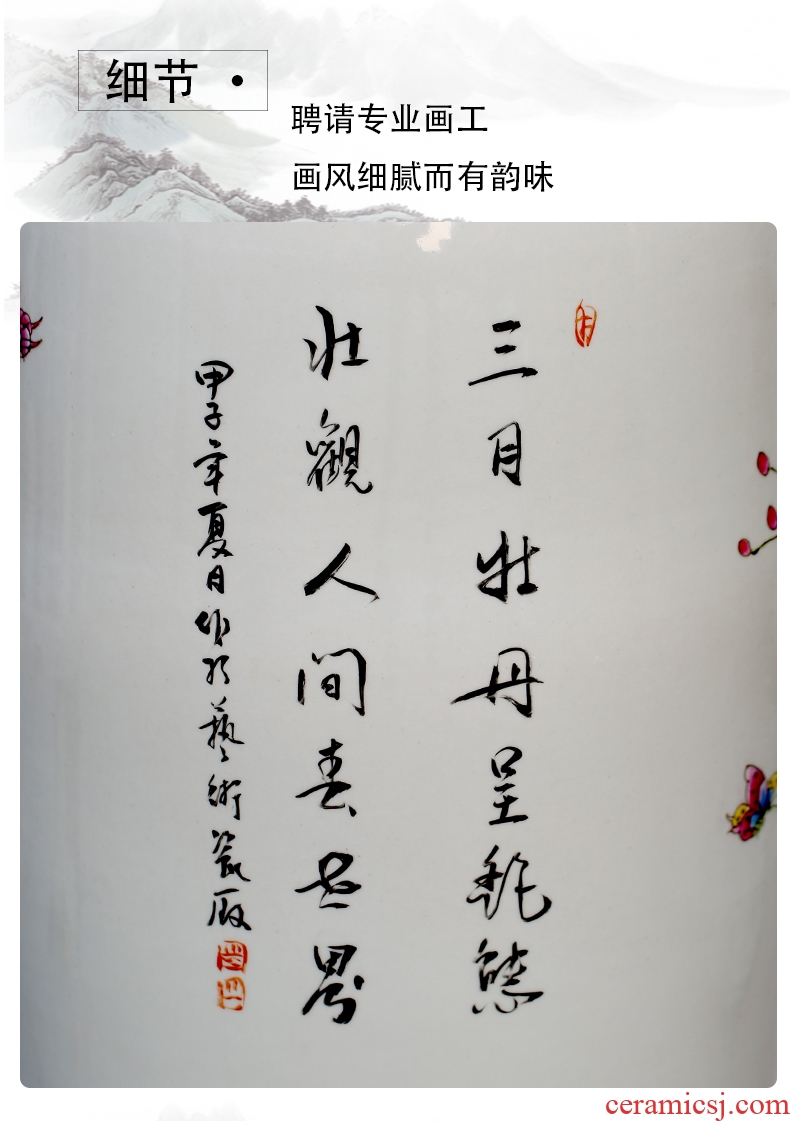 细节·
聘请专业画工
画风细腻而有韵味
三月牡丹呈艳態
壮觀人间春世界
甲子年夏日作於藝術瓷厰
ceramicsj.com